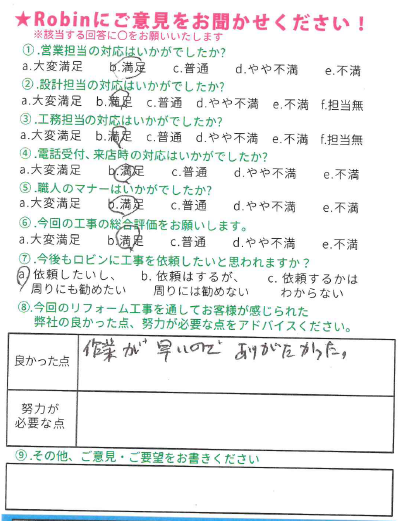 ★Robinにご意見をお聞かせください!
※該当する回答に〇をお願いいたします
①.営業担当の対応はいかがでしたか?
a.大変満足 b.満足 c.普通 d.やや不満 e.不満
②.設計担当の対応はいかがでしたか?
a.大変満足 b.満足 c.普通 d.やや不満 e.不満 f.担当無
③.工務担当の対応はいかがでしたか?
a.大変満足 b.満足 c.普通 d.やや不満 e.不満 f.担当無
④.電話受付、来店時の対応はいかがでしたか?
a.大変満足 b.満足 c.普通 d.やや不満 e.不満
⑤.職人のマナーはいかがでしたか?
a.大変満足 b.満足 c.普通 d.やや不満 e.不満
⑥.今回の工事の総合評価をお願いします。
a.大変満足 b.満足 c.普通 d.やや不満 e.不満
⑦.今後もロビンに工事を依頼したいと思われますか?
a.依頼したいし、 b.依頼はするが、 c.依頼するかは
周りにも勧めたい 周りには勧めない わからない
⑧.今回のリフォーム工事を通してお客様が感じられた
弊社の良かった点、努力が必要な点をアドバイスください。
良かった点 作業が早いのでありがたかった。
努力が
必要な点
⑨.その他、ご意見・ご要望をお書きください